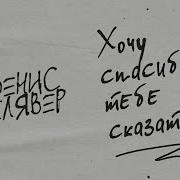 ДЕНИС
ЛЯВЕР
Хочу
спасиб
тебе
сказат